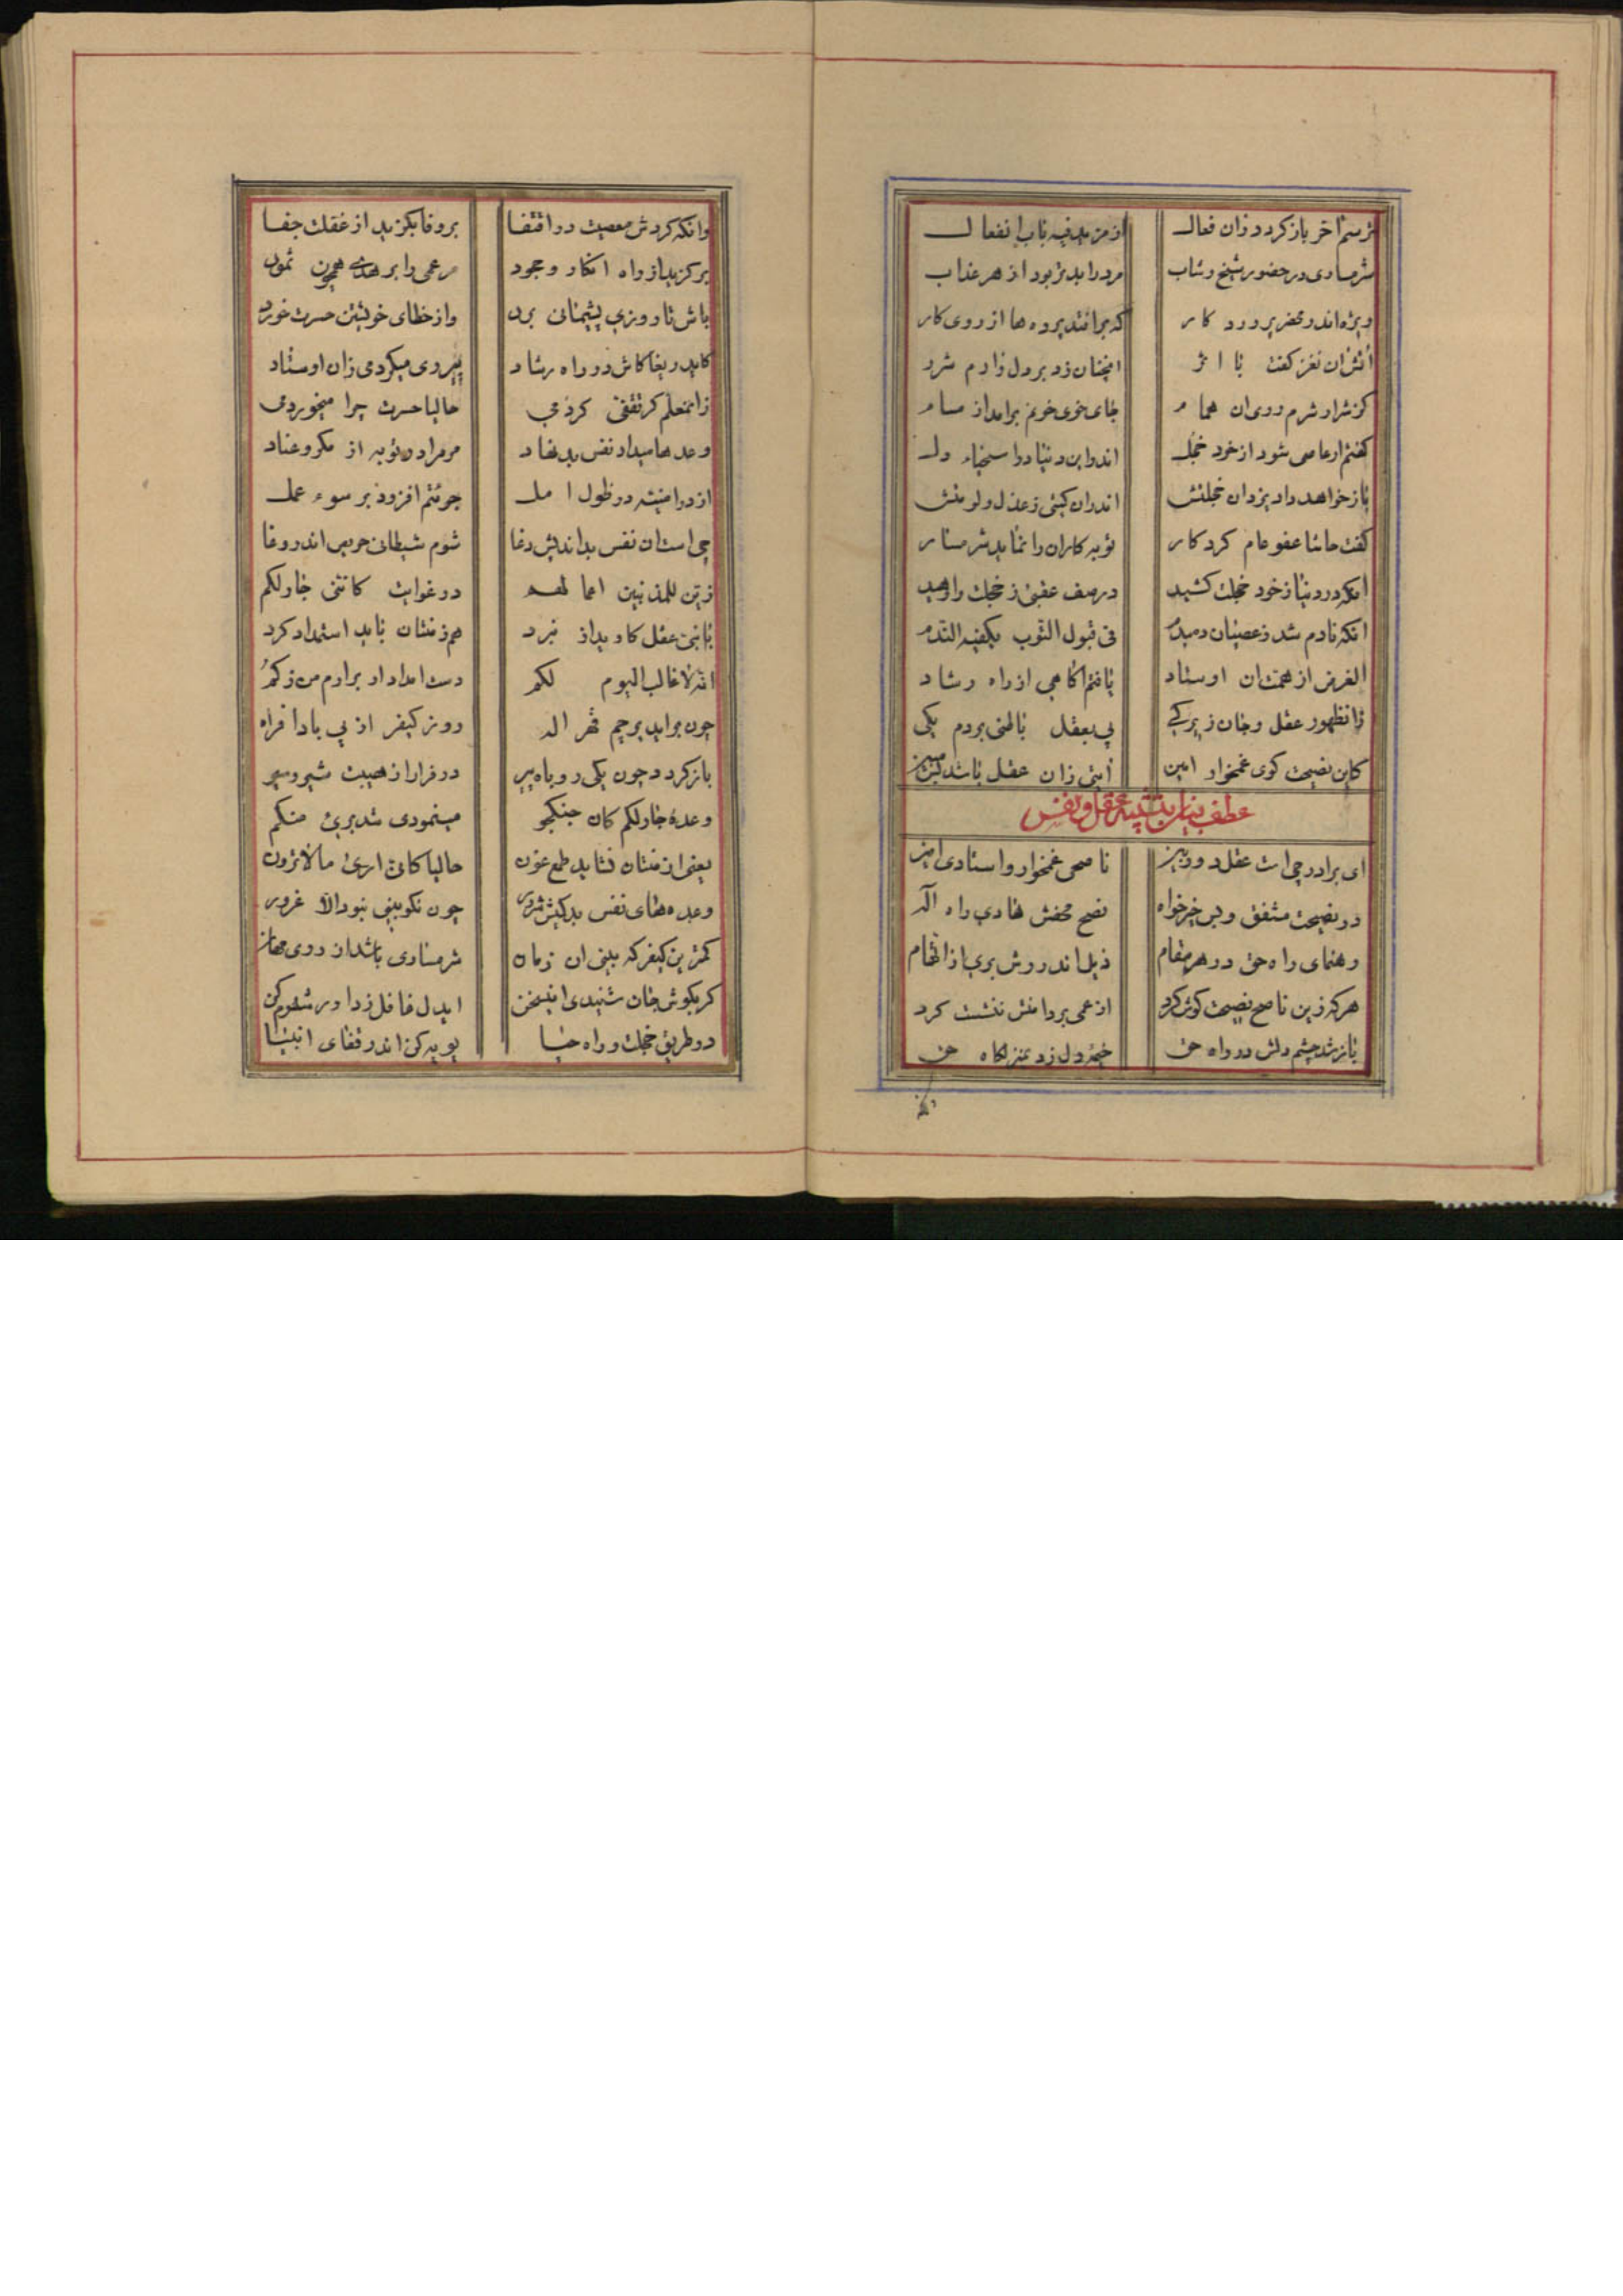 ترسم آخر باز کردد زان فعال از مزید فیه باب انفعال
شرمساری در حضور شیخ و شاب مرد را بدتر بود از هر عذاب
ویژه اندر محضر پرورد کار که برافتد پرده ها از روی کار
آتش آن نغز کفت با اثر انچنان زد بر دل زارم شرر
کز شرار شرم روی ان همام جای خوی خونم برامد از مسام
کفتم ار عاصی شود از خود خجل اندر این دنیا دل
باز خواهد داد یزدان خجلتش اندران کیتی ز عذل و لومتش
کفت حاشا عفو عام کردکار توبه کاران را نماید شرمسار
انکه در دنیا ز خود خجلت کشید در صف عقبی ز خجلت وارهید
انکه نادم شد ز عصیان دمبدم فی قبول التوب یکفیه الندم
الغرض از همت ان اوستاد یافتم اکاهی از راه رشاد
زان ظهور عقل و جان زیرکی پی بعقل باطنی بردم یکی
کاین نصیحت کوی غمخوار امین آیتی زان عقل باشد
عطف عنان عقل و نفس
ای برادر چی است عقل دوربین ناصحی غمخوار و استادی امین
در نصیحت مشفق و بس خیرخواه نصح محضش هادی راه اله
رهنمای راه حق در هر مقام ذیل اندر روش بری از اتهام
هر که زین ناصح نصیحت کوش کرد از عمی بر دامنش ننشست کرد
باز شد چشم دلش در راه حق خیمه دل زد بمنزلکاه حق
وانکه کردش معصیت در اقتفا بر وفا بکزید از غفلت جفا
برکزید از راه انکار و جحود مر عمی را بر هدی همچون ثمود
باش تا روزی پشیمانی برد واز خطای خویشتن حسرت خورد
کاید ریغا کاش در راه رشاد پیروی میکردمی زان اوستاد
زان معلم کر تلقی کردمی حالیا حسرت چرا میخوردمی
وعدها میداد نفس بد نهاد مر مرا در توبه از مکر و عناد
از در امنیه در طول امل جرئتم افزود بر سوء عمل
چی است ان نفس بداندیش دغا شوم شیطانی حریص اندر وغا
زین للمذنبین اعمالهم در غوایت کاننی جار لکم
با نبی عقل کاوید از نبرد هم ز منتان باید استمداد کرد
انه لا غالب الیوم لکم دست امداد ار برارم من ز کم
چون براید پرچم قهر اله روز کیفر از پی بادافراه
باز کردد چون یکی روباه پیر در فرار از هیبت شیر
وعدهٔ جار لکم کان جنکجو مینمودی شد بری منکم
یعنی از منتان نشاید طمع عون حالیا کانی اری ما لا ترون
وعده های نفس بدکیش شرور چون نکو بینی نبود الا غرور
کمترین کیفر که بینی ان زمان شرمساری باشد از روی مهان
کر بکوش جان شنیدی این سخن ایدل غافل ز داور شرم کن
در طریق خجلت و راه حیا پویه کن اندر قفای انبیا